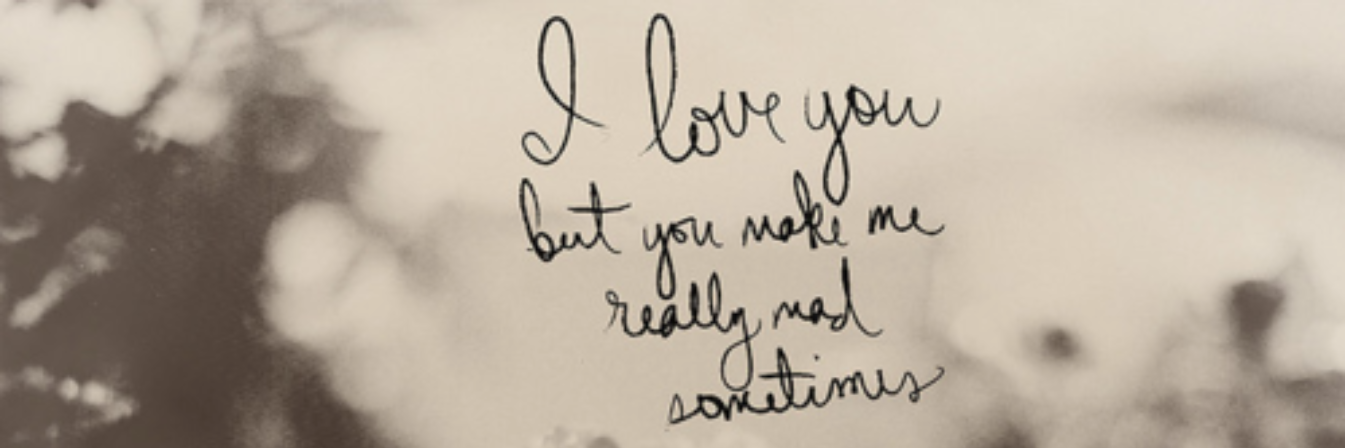 I love you
but you make me
really mad
sometimes